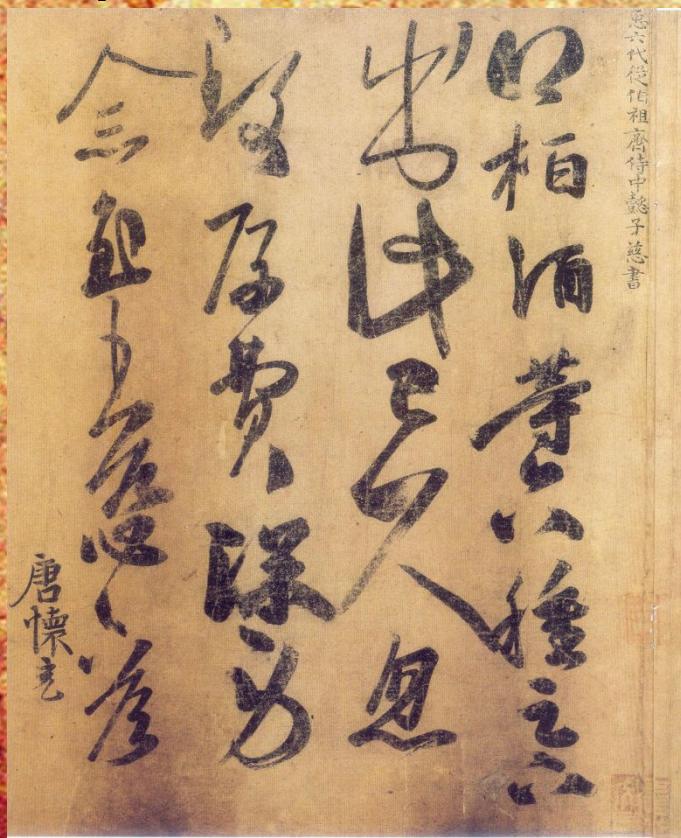 六代從伯祖齊侍中懿子慈書
柏酒等六種足下
出此已久忽
致厚費深勞
念王慈具答
唐懷充